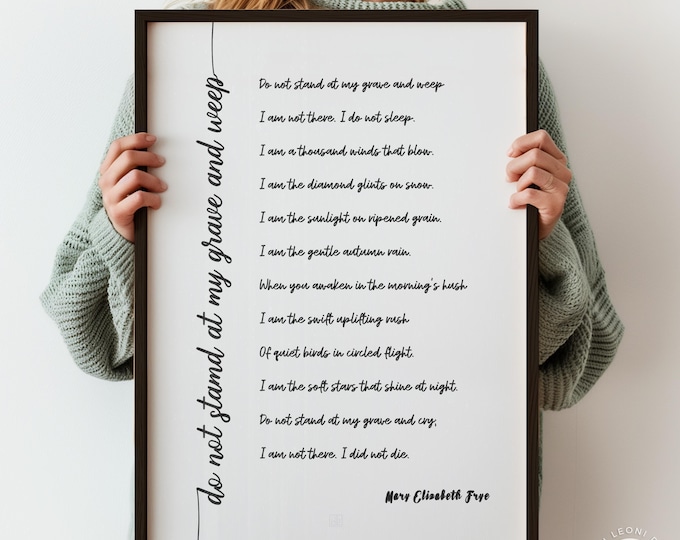 do not stand at my grave and weep
Do not stand at my grave and weep
I am not there. I do not sleep.
I am a thousand winds that blow.
I am the diamond glints on snow.
I am the sunlight on ripened grain.
I am the gentle autumn rain.
When you awaken in the morning's hush
I am the swift uplifting rush
Of quiet birds in circled flight.
I am the soft stars that shine at night.
Do not stand at my grave and cry;
I am not there. I did not die.
Mary Elizabeth Frye
LEONI